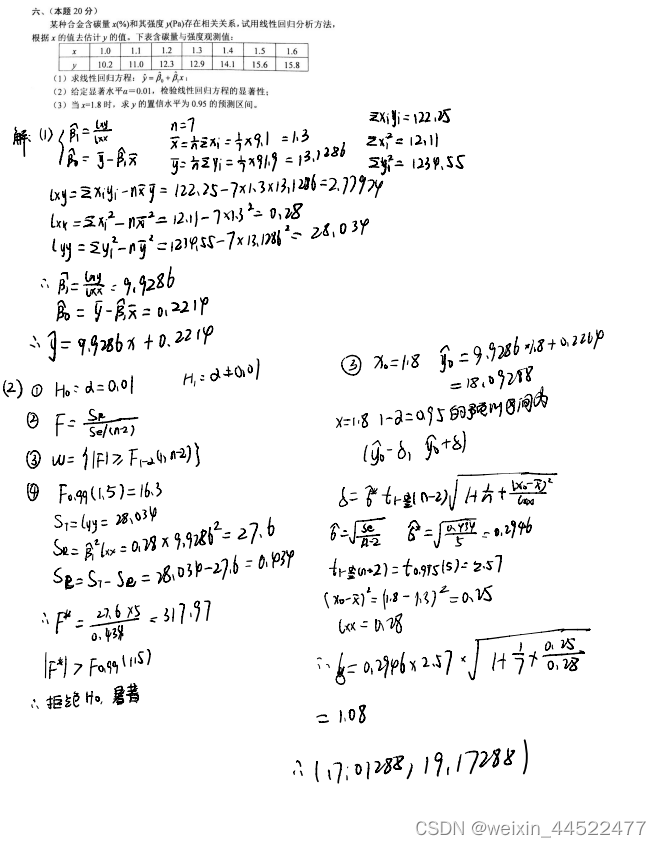 六、(本题 20 分)
某种合金含碳量 x(%)和其强度 y(Pa)存在相关关系，试用线性回归分析方法，
根据 x 的值去估计 y 的值。下表含碳量与强度观测值：
x 1.0 1.1 1.2 1.3 1.4 1.5 1.6
y 10.2 11.0 12.3 12.9 14.1 15.6 15.8
(1) 求线性回归方程：ŷ=β̂₀+β̂₁x；
(2) 给定显著水平α=0.01，检验线性回归方程的显著性；
(3) 当 x=1.8 时，求 y 的置信水平为 0.95 的预测区间。
解 (1) { β̂₁=lxy/lxx
β̂₀=ȳ-β̂₁x̄
n=7
x̄=1/n Σxi=1/7×9.1=1.3
ȳ=1/n Σyi=1/7×91.9=13.1286
Σxiyi=122.25
Σxi²=12.11
Σyi²=1234.55
lxy=Σxiyi-nx̄ȳ=122.25-7×1.3×13.1286=2.77974
lxx=Σxi²-nx̄²=12.11-7×1.3²=0.28
lyy=Σyi²-nȳ²=1234.55-7×13.1286²=28.034
∴ β̂₁=lxy/lxx=9.9286
β̂₀=ȳ-β̂₁x̄=0.2214
∴ ŷ=9.9286x+0.2214
(2) ① H₀:α=0.01 H₁:α≠0.01
② F=SR/Se/(n-2)
③ W={|F|≥F1-α(1,n-2)}
④ F0.99(1,5)=16.3
ST=lyy=28.034
SR=β̂₁²lxx=0.28×9.9286²=27.6
SE=ST-SR=28.034-27.6=0.434
∴ F*=27.6×5/0.434=317.97
|F*|>F0.99(1,5)
∴ 拒绝H₀,显著
③ x₀=1.8 ŷ₀=9.9286×1.8+0.2264
=18.09288
x=1.8 1-α=0.95的预测区间为
(ŷ₀-δ, ŷ₀+δ)
δ=σ̂* t1-α/2(n-2)√(1+1/n+(x₀-x̄)²/lxx)
σ̂=√(Se/n-2) σ̂*=√(0.434/5)=0.2946
t1-α/2(n-2)=t0.975(5)=2.57
(x₀-x̄)²=(1.8-1.3)²=0.25
lxx=0.28
∴ δ=0.2946×2.57×√(1+1/7+0.25/0.28)
=1.08
∴ (17.01288, 19.17288)
CSDN @weixin_44522477